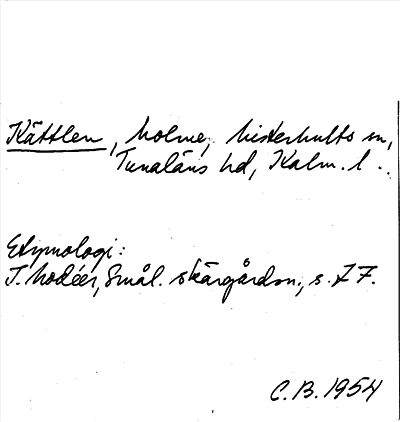 Kättlen, holme, Misterhults sn,
Tunaläns hd, Kalm. l.
Etymologi:
I. Modéer, Smål. skärgårdsn., s. 77.
C.B. 1954